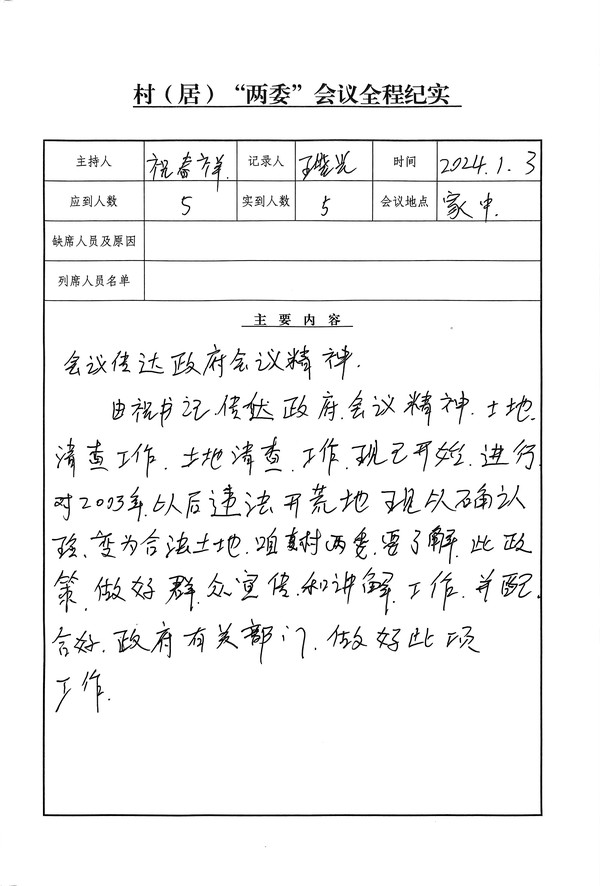 村（居）“两委”会议全程纪实
主持人 祝春祥 记录人 王晓光 时间 2024.1.3
应到人数 5 实到人数 5 会议地点 家中
缺席人员及原因
列席人员名单
主要内容
会议传达政府会议精神.
由祝书记传达政府会议精神.土地.
清查工作.土地清查.工作.现已开始.进行.
对2003年.以后违法开荒地 现以确认
变为合法土地.咱村两委.要了解.此政
策.做好群众宣传和讲解.工作.并配
合好.政府有关部门.做好此项
工作.